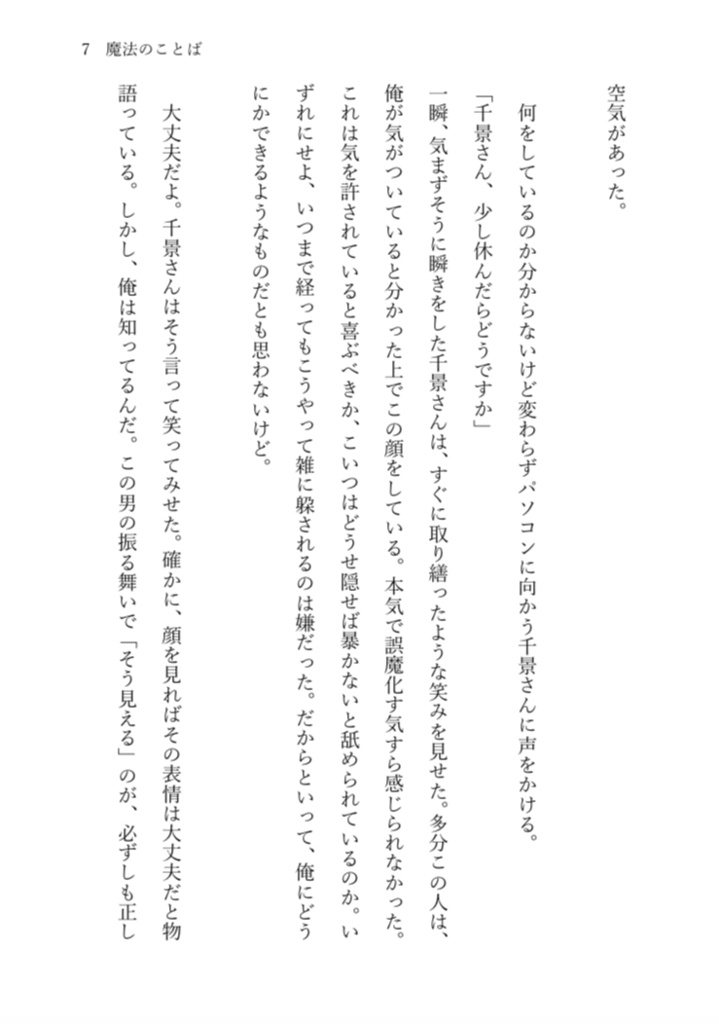 7 魔法のことば
空気があった。
何をしているのか分からないけど変わらずパソコンに向かう千景さんに声をかける。
「千景さん、少し休んだらどうですか」
一瞬、気まずそうに瞬きをした千景さんは、すぐに取り繕ったような笑みを見せた。多分この人は、
俺が気がついていると分かった上でこの顔をしている。本気で誤魔化す気すら感じられなかった。
これは気を許されていると喜ぶべきか、こいつはどうせ隠せば暴かないと舐められているのか。い
ずれにせよ、いつまで経ってもこうやって雑に躱されるのは嫌だった。だからといって、俺にどう
にかできるようなものだとも思わないけど。
大丈夫だよ。千景さんはそう言って笑ってみせた。確かに、顔を見ればその表情は大丈夫だと物
語っている。しかし、俺は知ってるんだ。この男の振る舞いで「そう見える」のが、必ずしも正し